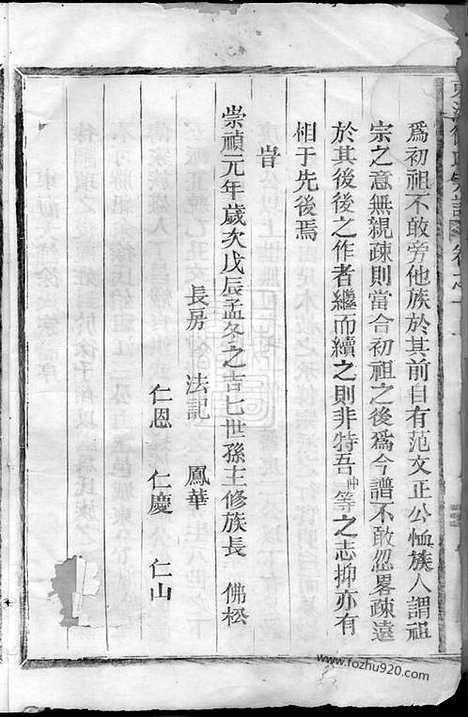 爲初祖不敢旁他族於其前自有范文正公恤族人謂祖
宗之意無親疎則當合初祖之後爲今譜不敢忽畧疎遠
於其後後之作者繼而續之則非特吾忡等之志抑亦有
相于先後焉
旹
崇禎元年歲次戊辰孟冬之吉七世孫主修族長 佛松
長房 法記 鳳華
仁恩 仁慶 仁山
www.fozhu920.com